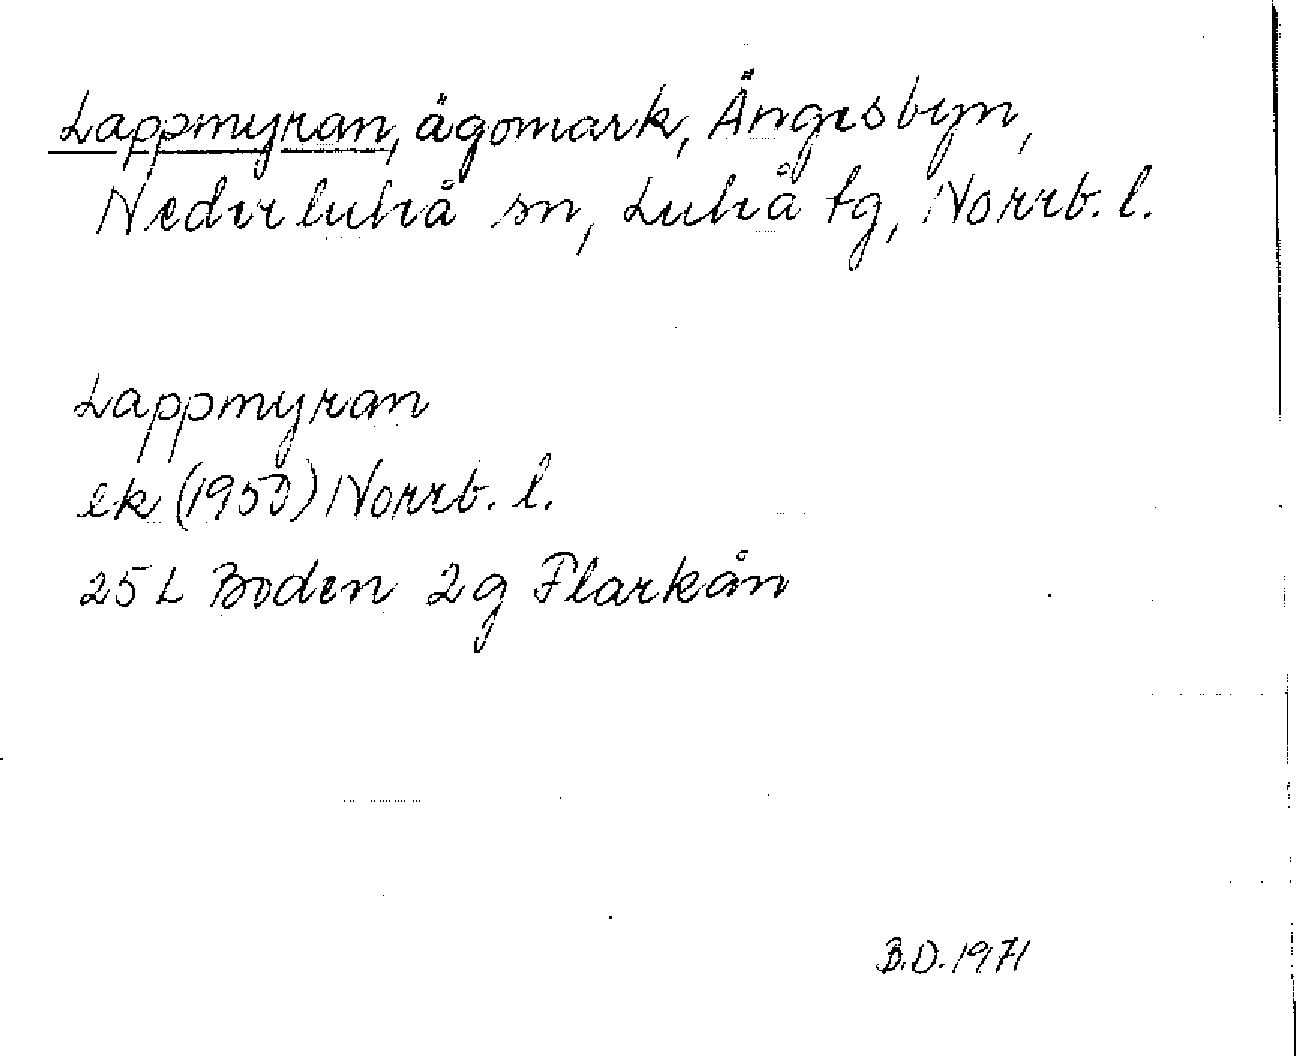 Lappmyran, ägomark, Ängesbyn,
Nederluleå sn, Luleå tg, Norrb. l.
Lappmyran
ek (1950) Norrb. l.
25 L Boden 2g Flarkån
B.D. 1971